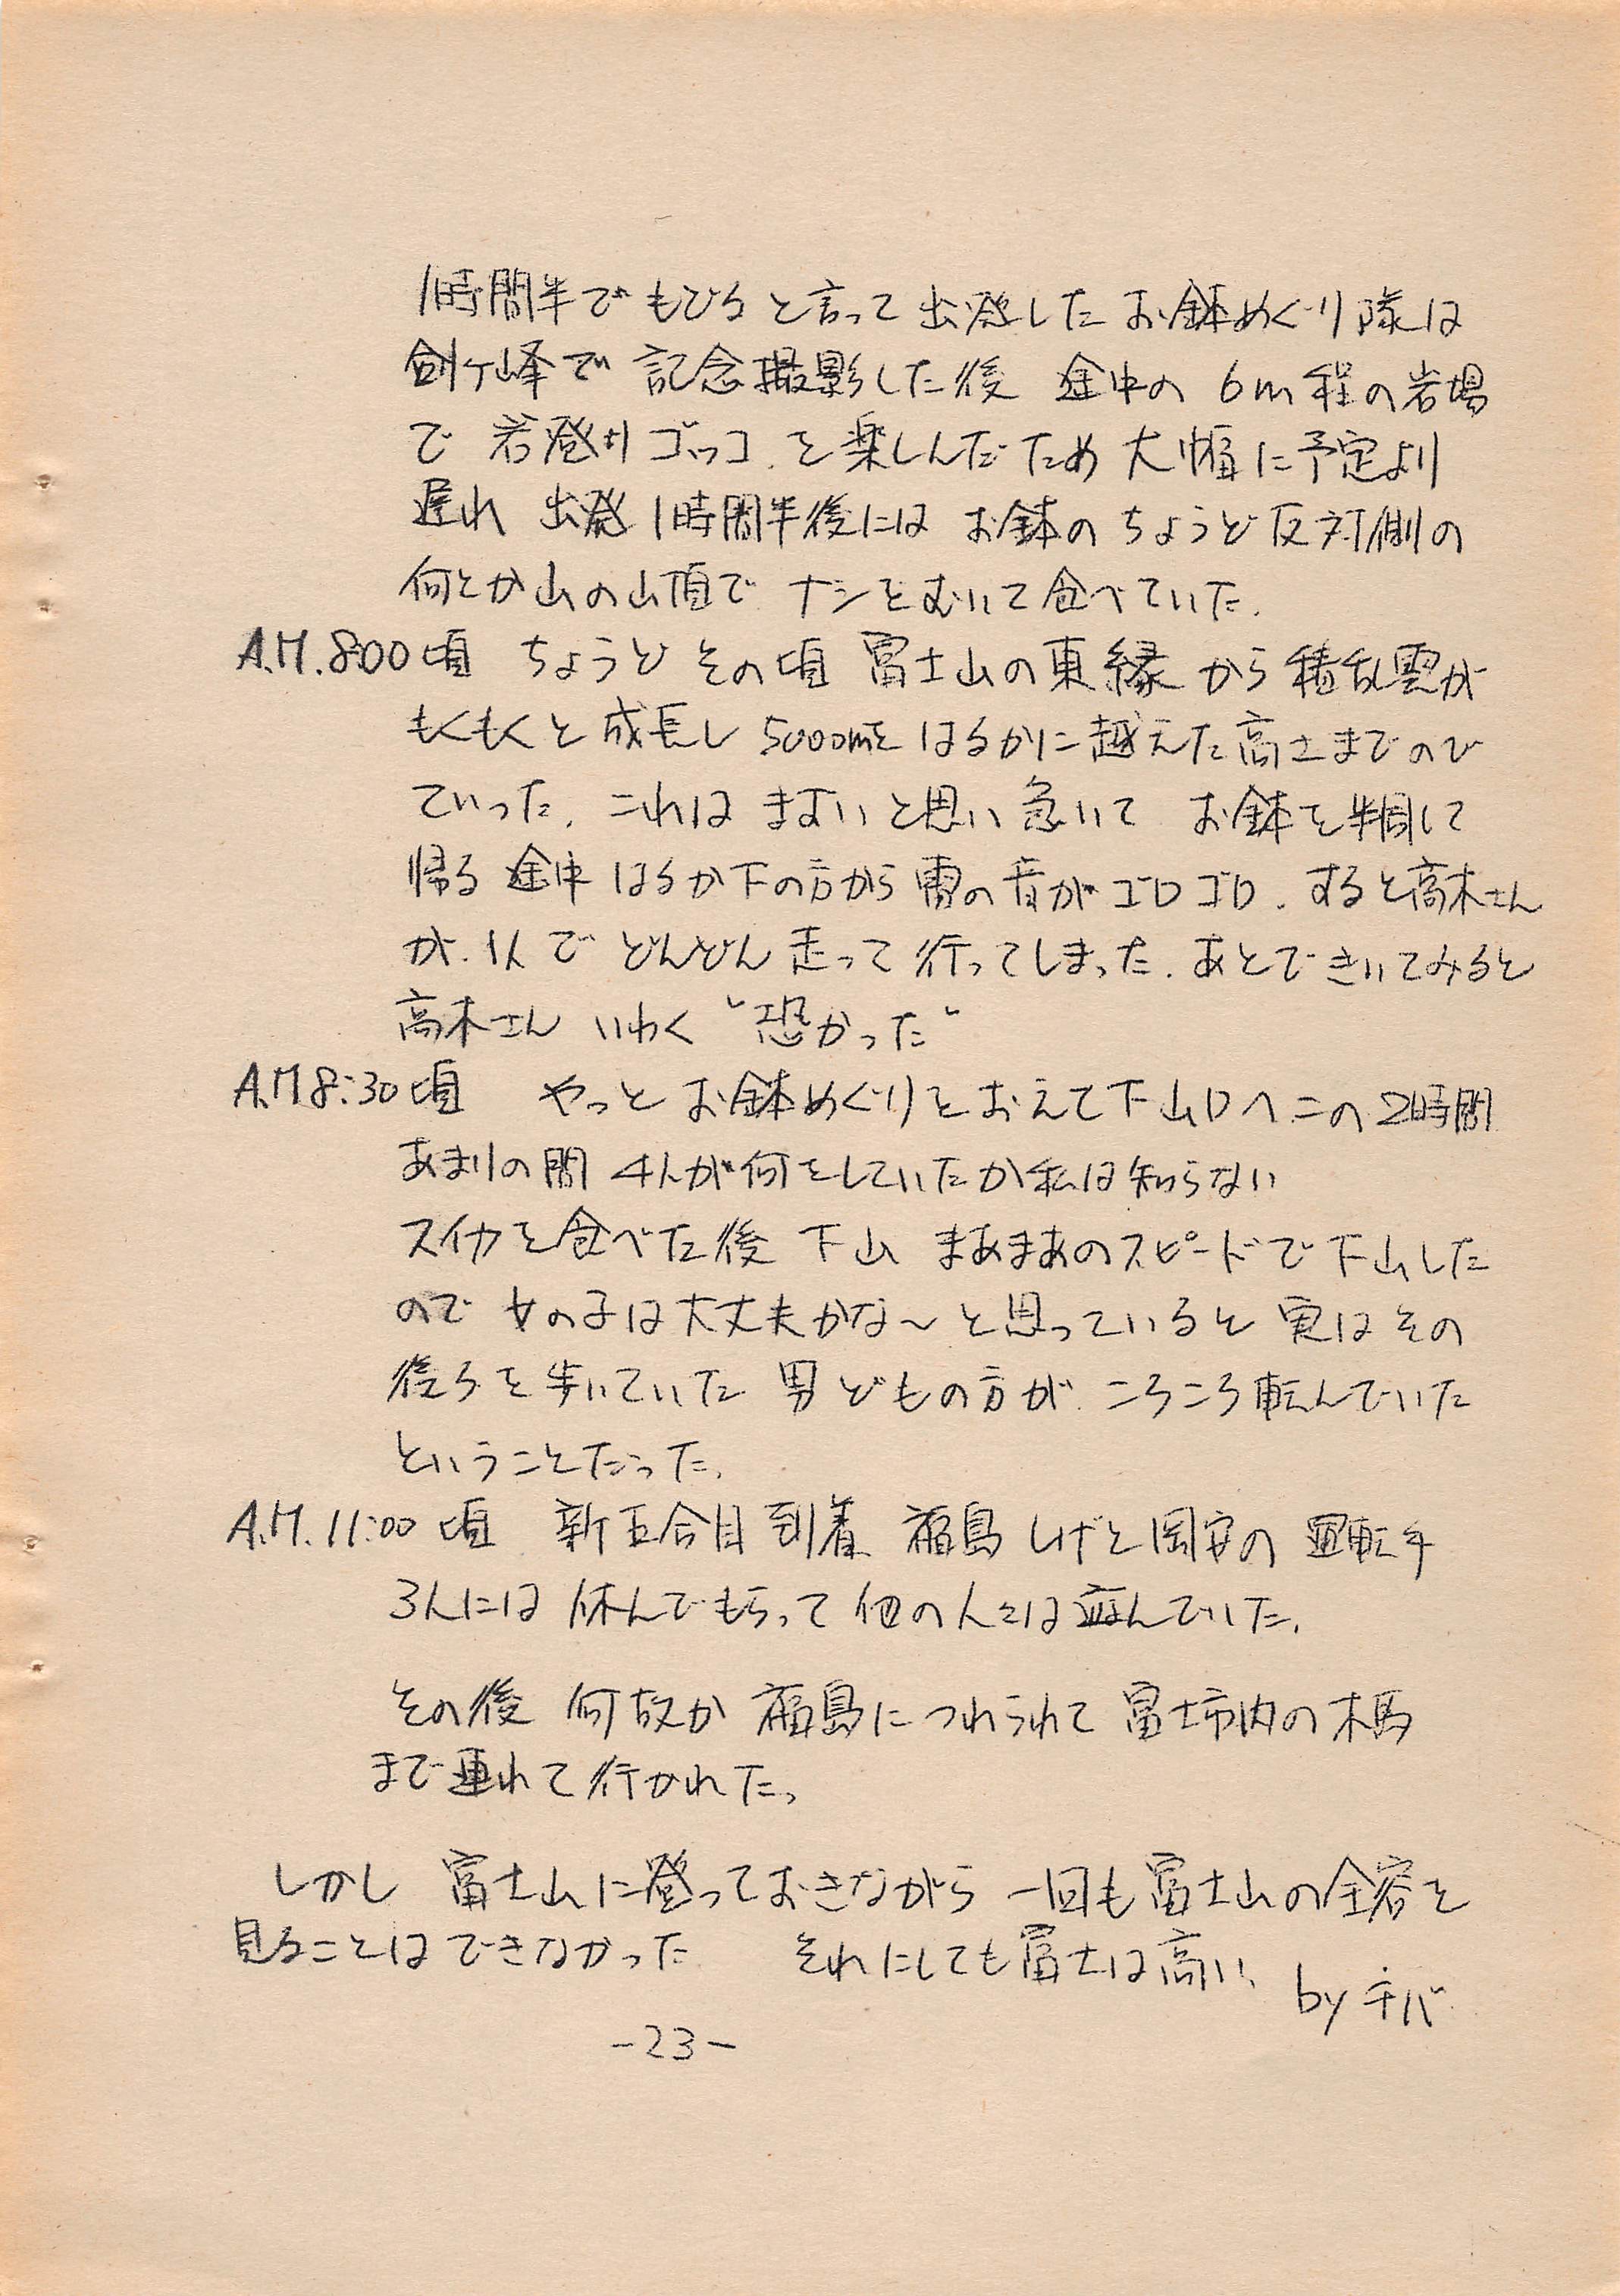 1時間半でもどると言って出発したお鉢めぐり隊は
剣ヶ峰で記念撮影した後 途中の 6m程の岩場
で 岩登りゴッコ を楽しんだため 大幅に予定より
遅れ 出発1時間半後には お鉢のちょうど反対側の
何とか山の山頂で ナシをむいて食べていた.
A.M.8:00頃 ちょうど その頃 富士山の東縁から積乱雲が
もくもくと成長し 5000mをはるかに越えた高さまでのび
ていった. これは まずいと思い 急いで お鉢を半周して
帰る途中 はるか下の方から 雷の音がゴロゴロ. すると高木さん
が.1人で どんどん 走って行ってしまった. あとできいてみると
高木さん いわく “恐かった”
A.M 8:30頃 やっと お鉢めぐりをおえて下山口へこの2時間
あまりの間 4人が何をしていたか私は知らない
スイカを食べた後 下山 まあまあのスピードで下山した
ので 女の子は大丈夫かな〜と思っていると 実はその
後ろを歩いていた 男どもの方が ころころ転んでいた
ということだった.
A.M.11:00頃 新五合目到着 福島 しげと岡安の 運転手
3人には 休んでもらって 他の人々は遊んでいた.
その後 何故か 福島につれられて 富士市内の木馬
まで連れて行かれた。
しかし 富士山に登っておきながら 一回も富士山の全容を
見ることはできなかった それにしても富士は高い.
by チバ
-23-